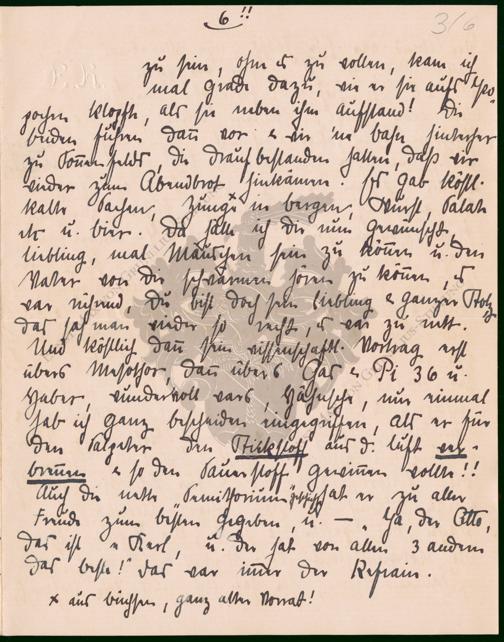 6!!
3/6
zu sein, ohne es zu wollen, kam ich
mal grade dazu, wie er sie aufs
klopfte, als sie neben ihm aufstand! Die
beiden fuhren dann vor & wir 'ne Bahn hinterher
zu Sonnenfelds, die drauf bestanden hatten, daß wir
wieder zum Abendbrot hinkämen. Es gab köstl.
kalte Sachen, Zunge x in bergen, Wurst, Salate
etc u. Bier. Da hätte ich dir nun gewünscht,
Liebling, mal Mäuschen sein zu können u. den
Vater von dir schwärmen hören zu können, es
war rührend, du bist doch sein Liebling & ganzer Stolz,
das sah man wieder so recht, es war zu nett.
Und köstlich dann sein wissenschaftl. Vortrag erst
übers Mesothor, dann übers Gas & Pi 36 u.
Haber, wundervoll wars, Hähnche, nur einmal
hab ich ganz bescheiden eingegriffen, als er für
den Salpeter den Stickstoff aus d. Luft ver-
brennen & so den Sauerstoff gewinnen wollte!!
Auch die nette hat er zu aller
Freude zum besten gegeben, u. — „Ja, der Otto,
das ist 'n Kerl, u. der hat von allen 3 andern
das beste!" das war immer der Refrain.
x aus büchsen, ganz alter Vorrat!